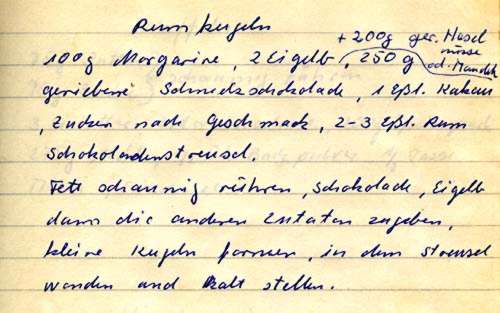 Rumkugeln
+ 200g ger. Hasel
nüsse
od. Mandeln
100g Margarine, 2 Eigelb, 250 g
geriebene Schmelzschokolade, 1 Eßl. Kakao
, Zucker nach Geschmack, 2-3 Eßl. Rum
Schokoladenstreusel.
Fett schaumig rühren, Schokolade, Eigelb
dann die anderen Zutaten zugeben,
kleine Kugeln formen, in dem Streusel
wenden und kalt stellen.